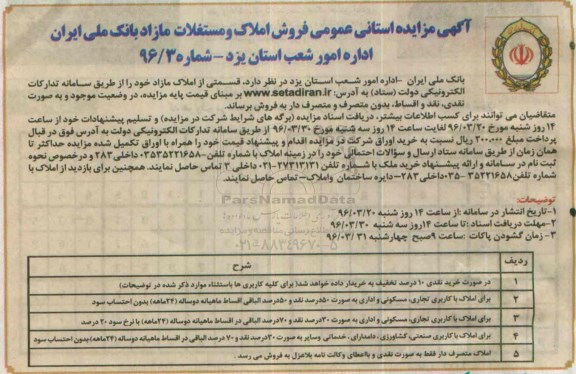 آگهی مزایده استانی عمومی فروش املاک و مستغلات مازاد بانک ملی ایران
اداره امور شعب استان یزد - شماره ۹۶/۳
بانک ملی ایران -اداره امور شعب استان یزد در نظر دارد، قسمتی از املاک مازاد خود را از طریق سامانه تدارکات
الکترونیکی دولت (ستاد) به آدرس: www.setadiran.ir بر مبنای قیمت پایه مزایده، در وضعیت موجود و به صورت
نقدی، نقد و اقساط، بدون متصرف و متصرف دار به فروش برساند.
متقاضیان می توانند برای کسب اطلاعات بیشتر، دریافت اسناد مزایده (برگه های شرایط شرکت در مزایده) و تسلیم پیشنهادات خود از ساعت
۱۴ روز شنبه مورخ ۹۶/۰۳/۲۰ لغایت ساعت ۱۴ روز سه شنبه مورخ ۹۶/۰۳/۳۰ از طریق سامانه تدارکات الکترونیکی دولت به آدرس فوق در قبال
پرداخت مبلغ ۲۰۰.۰۰۰ ریال نسبت به خرید اوراق شرکت در مزایده اقدام و پیشنهاد قیمت خود را همراه با اوراق تکمیل شده مزایده حداکثر تا
همان زمان از طریق سامانه ستاد ارسال و سؤالات احتمالی خود را در زمینه املاک با شماره تلفن ۰۳۵۳۵۲۲۱۶۵۸ داخلی ۲۸۳ و درخصوص نحوه
ثبت نام در سامانه و ارائه پیشنهاد خرید ملک با شماره تلفن ۲۷۳۱۳۱۳۱-۰۲۱ داخلی ۲ تماس حاصل نمایند. همچنین برای بازدید از املاک با
شماره تلفن ۳۵۲۲۱۶۵۸-۰۳۵ داخلی ۲۸۳-دایره ساختمان واملاک- تماس حاصل نمایند.
توضیحات:
۱-تاریخ انتشار در سامانه :از ساعت ۱۴ روز شنبه ۹۶/۰۳/۲۰
۲-مهلت دریافت اسناد :تا ساعت ۱۴روز سه شنبه ۹۶/۰۳/۳۰
۳- زمان گشودن پاکات :ساعت ۹صبح چهارشنبه ۹۶/۰۳/۳۱
ParsNamadData
۰۲۱-۸۸۳۴۹۶۷۰-۵
ردیف شرح
۱ در صورت خرید نقدی ۱۰ درصد تخفیف به خریدار داده خواهد شد( برای کلیه کاربری ها باستثناء موارد ذکر شده در توضیحات)
۲ برای املاک با کاربری تجاری، مسکونی و اداری به صورت ۵۰درصد نقد و ۵۰درصد الباقی اقساط ماهیانه دوساله (۲۴ماهه) بدون احتساب سود
۳ برای املاک با کاربری تجاری، مسکونی و اداری به صورت ۳۰درصد نقد و ۷۰درصد الباقی در اقساط ماهیانه دوساله (۲۴ماهه) با نرخ سود ۲۰ درصد
۴ برای املاک با کاربری صنعتی، کشاورزی، دامداری، خدماتی وسایر به صورت ۳۰درصد نقد و ۷۰ درصد الباقی در اقساط ماهیانه دوساله (۲۴ماهه) بدون احتساب سود
۵ املاک متصرف دار فقط به صورت نقدی و بااعطای وکالت نامه بلاعزل به فروش می رسد .